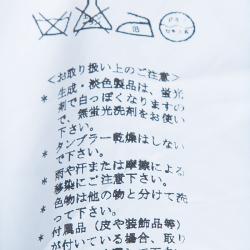 <お取り扱い上のご注意>
* 生成・淡色製品は、蛍光
剤で白っぽくなりますの
で、無蛍光洗剤をお使い
下さい。
* タンブラー乾燥はしない
で下さい。
* 雨や汗または摩擦による
移染にご注意下さい。
* 色物は他の物と分けて洗
って下さい。
* 付属品(皮や装飾品等)
が付いている場合、取り